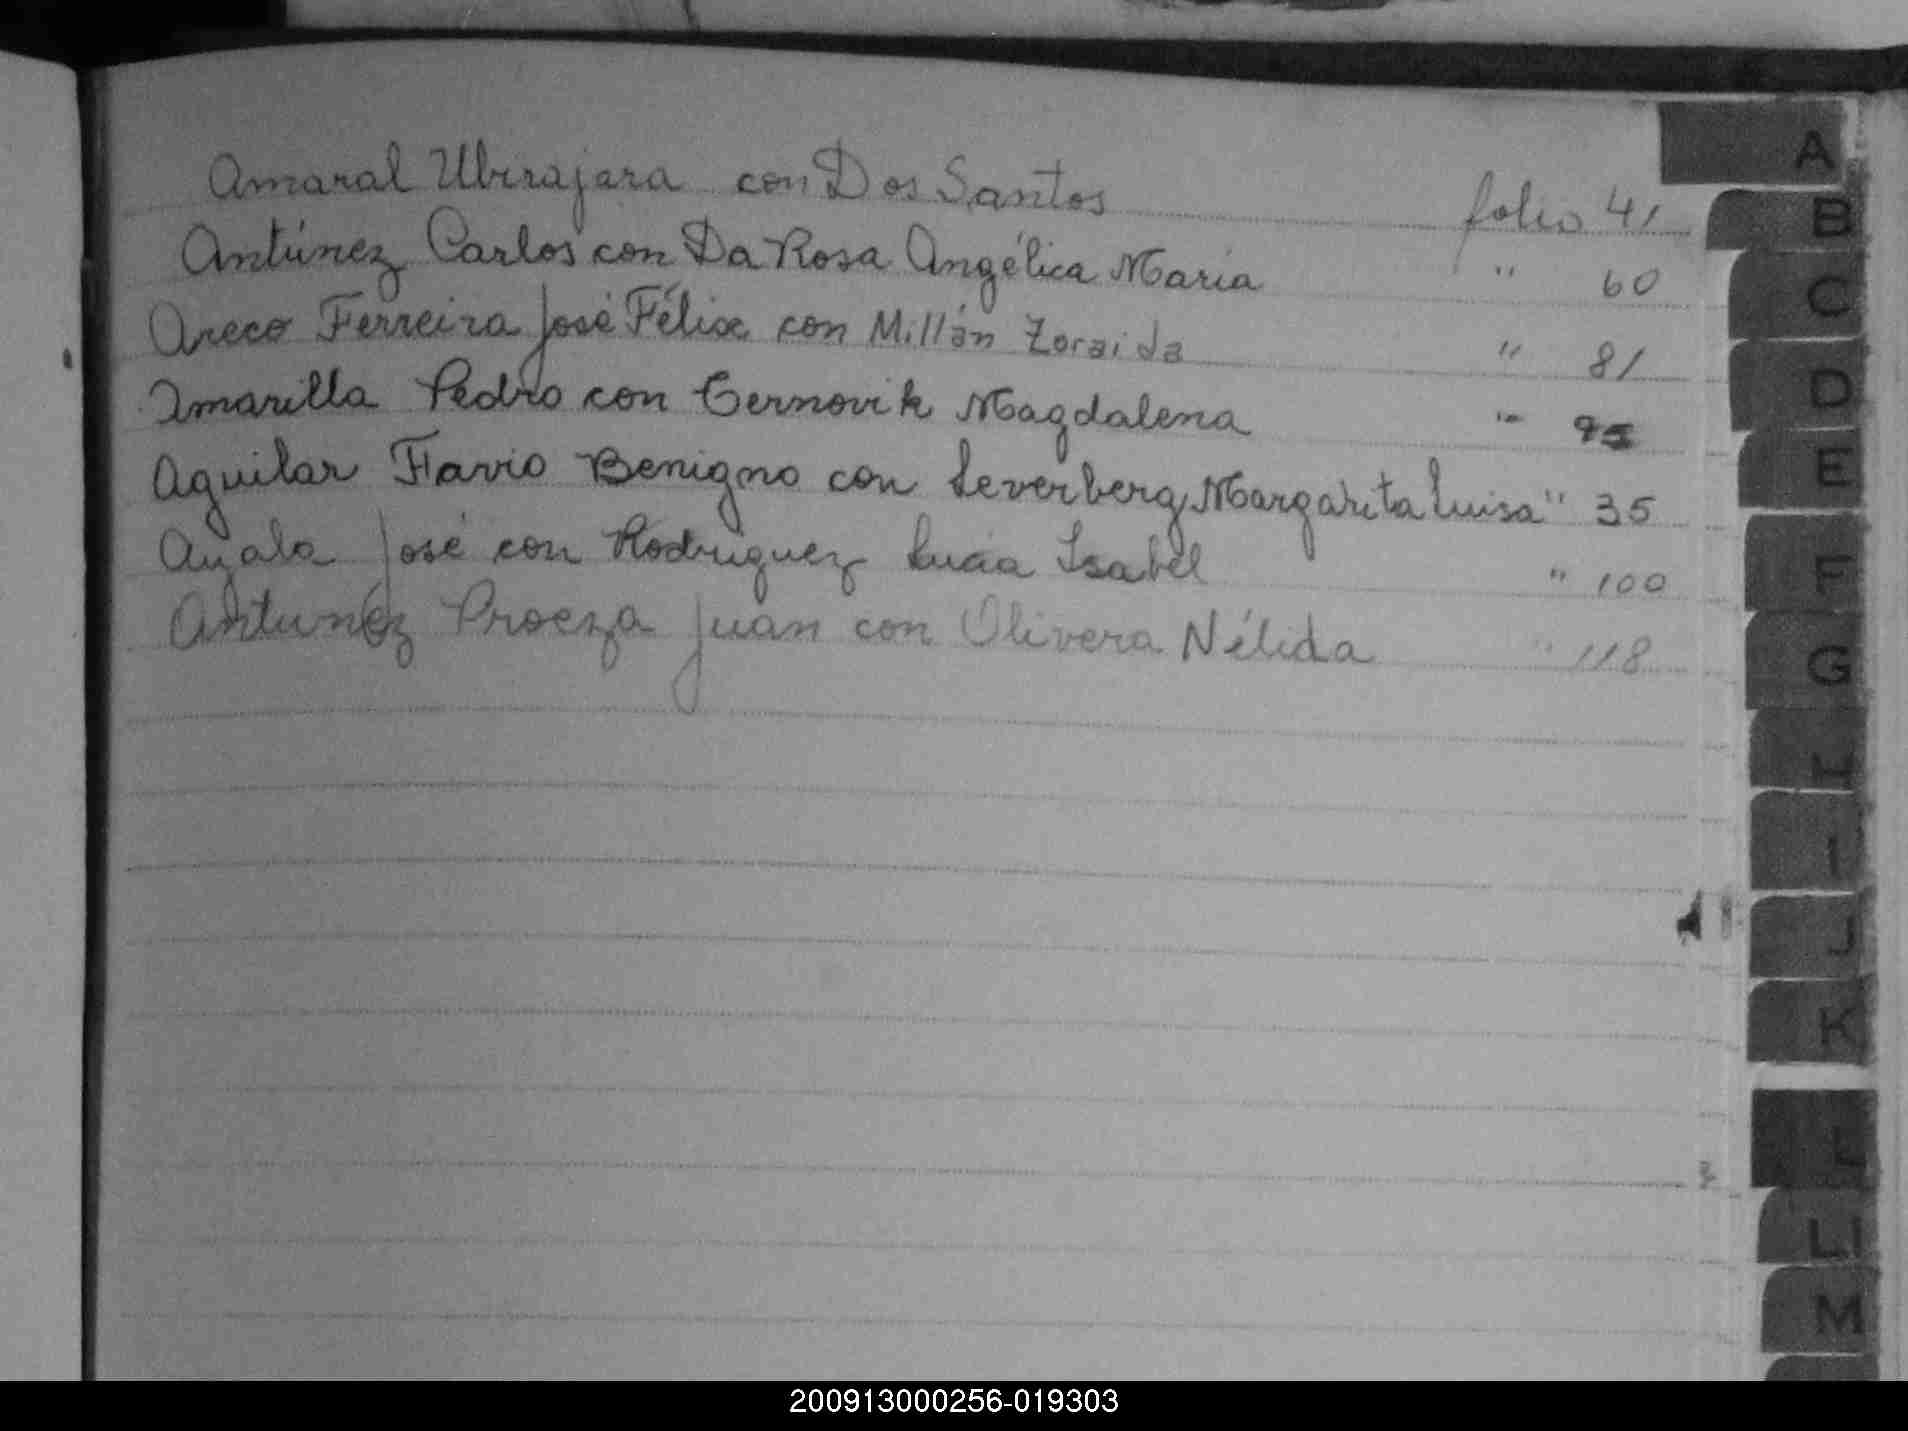 Amaral Ubirajara con Dos Santos folio 41
Antúnez Carlos con Da Rosa Angélica María " 60
Areco Ferreira José Félix con Millán Zoraida " 81
Amarilla Pedro con Cernovik Magdalena " 95
Aguilar Flavio Benigno con Leverberg Margarita Luisa " 35
Ayala José con Rodríguez Lucía Isabel " 100
Antunez Proeza Juan con Olivera Nélida " 118
A
B
C
D
E
F
G
H
I
J
K
L
Ll
M
200913000256-019303